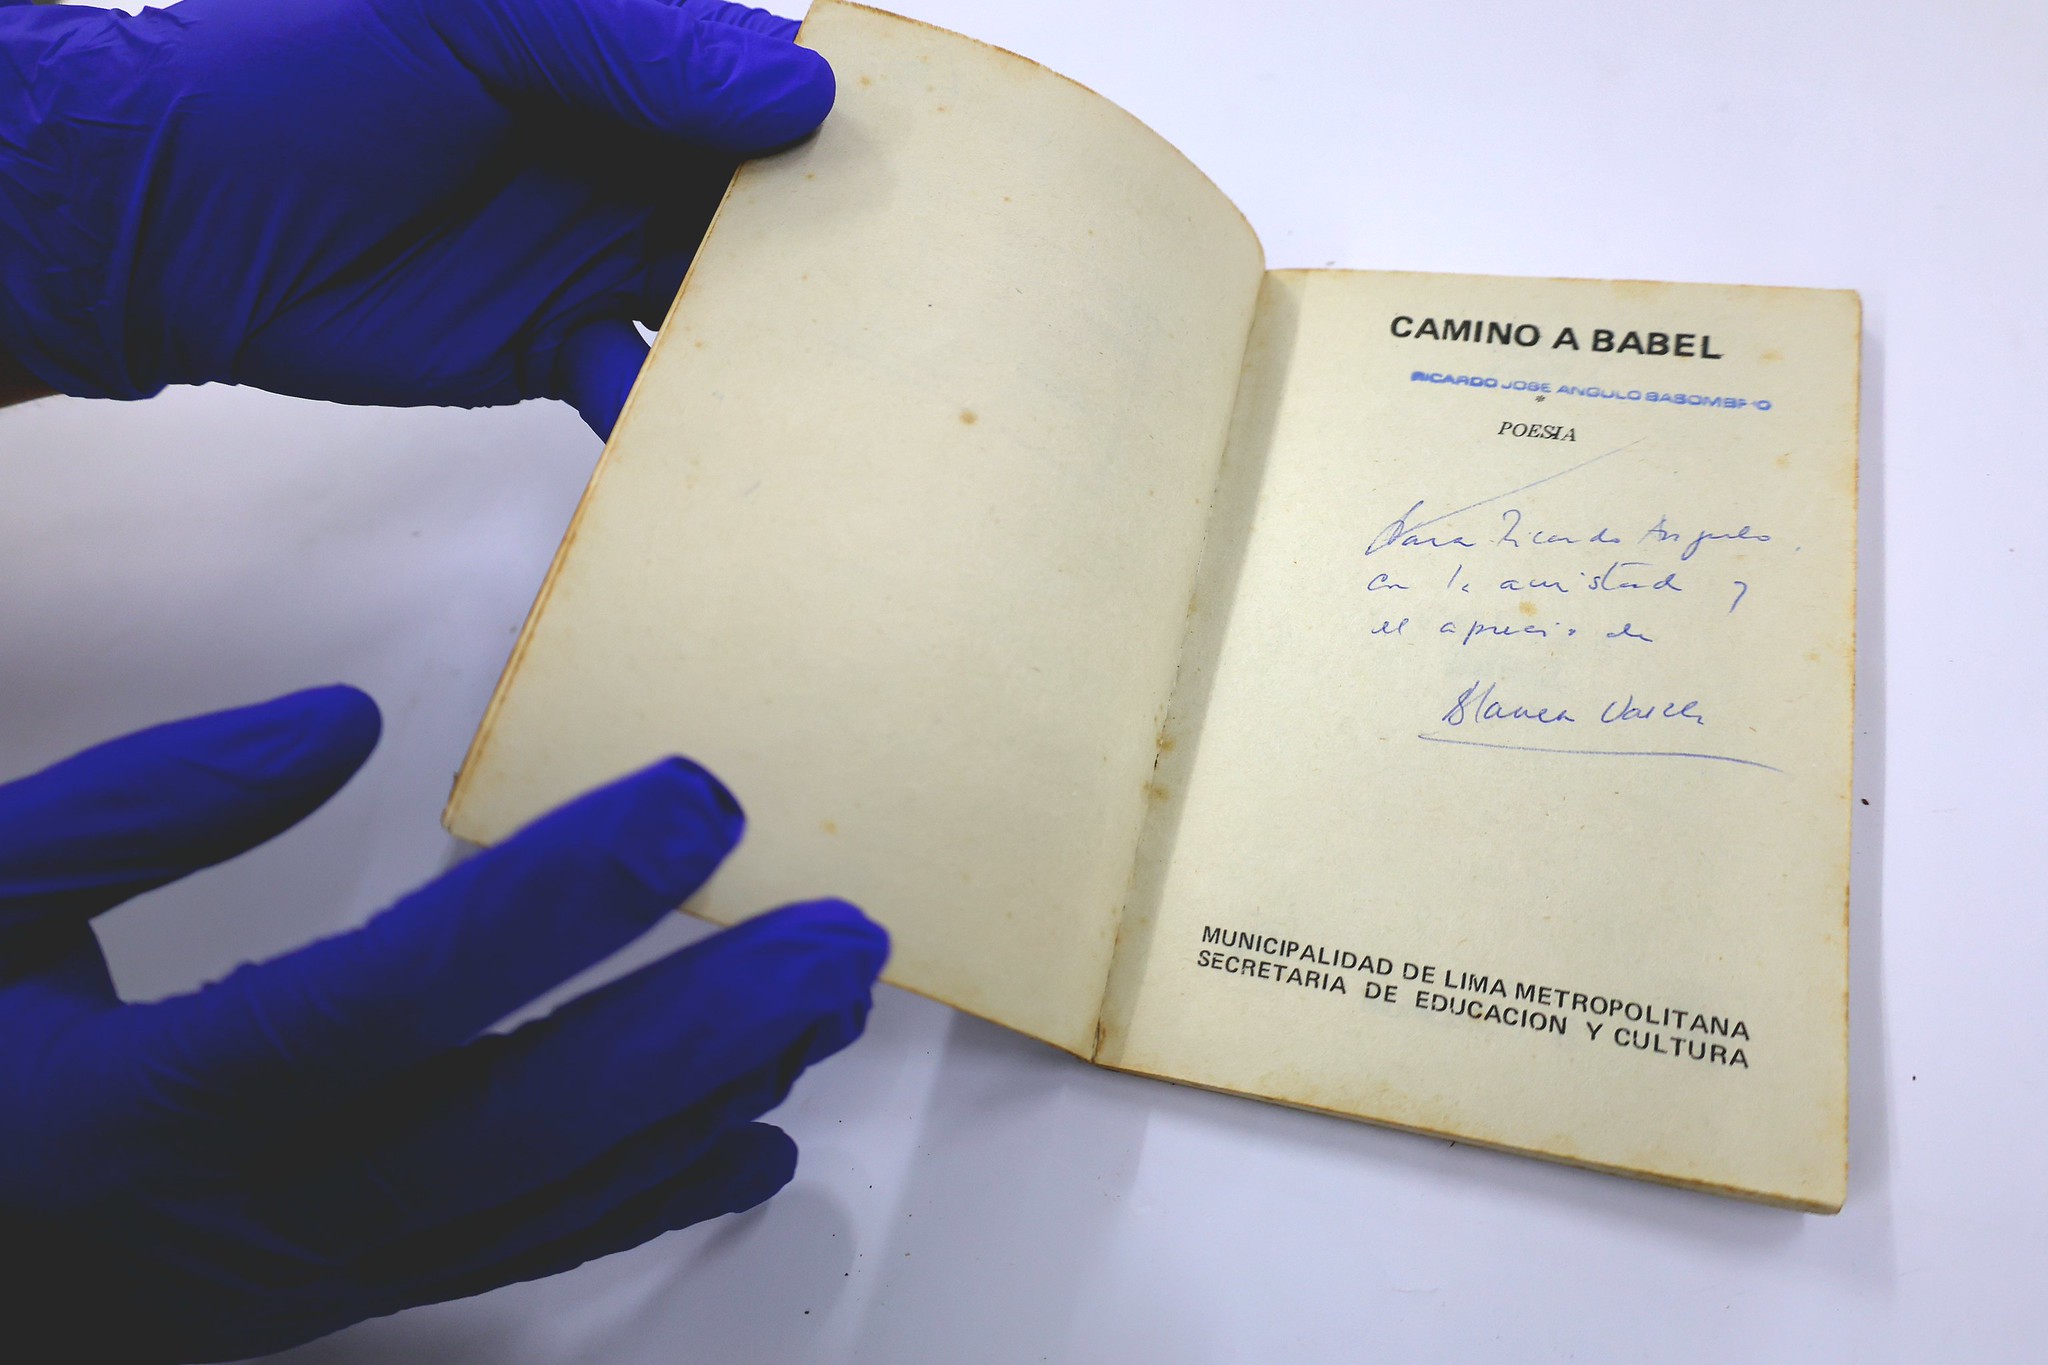 CAMINO A BABEL
RICARDO JOSE ANGULO BASOMBRIO
*
POESIA
Para Ricardo Angulo,
con la amistad y
el aprecio de
Blanca Varela
MUNICIPALIDAD DE LIMA METROPOLITANA
SECRETARIA DE EDUCACION Y CULTURA